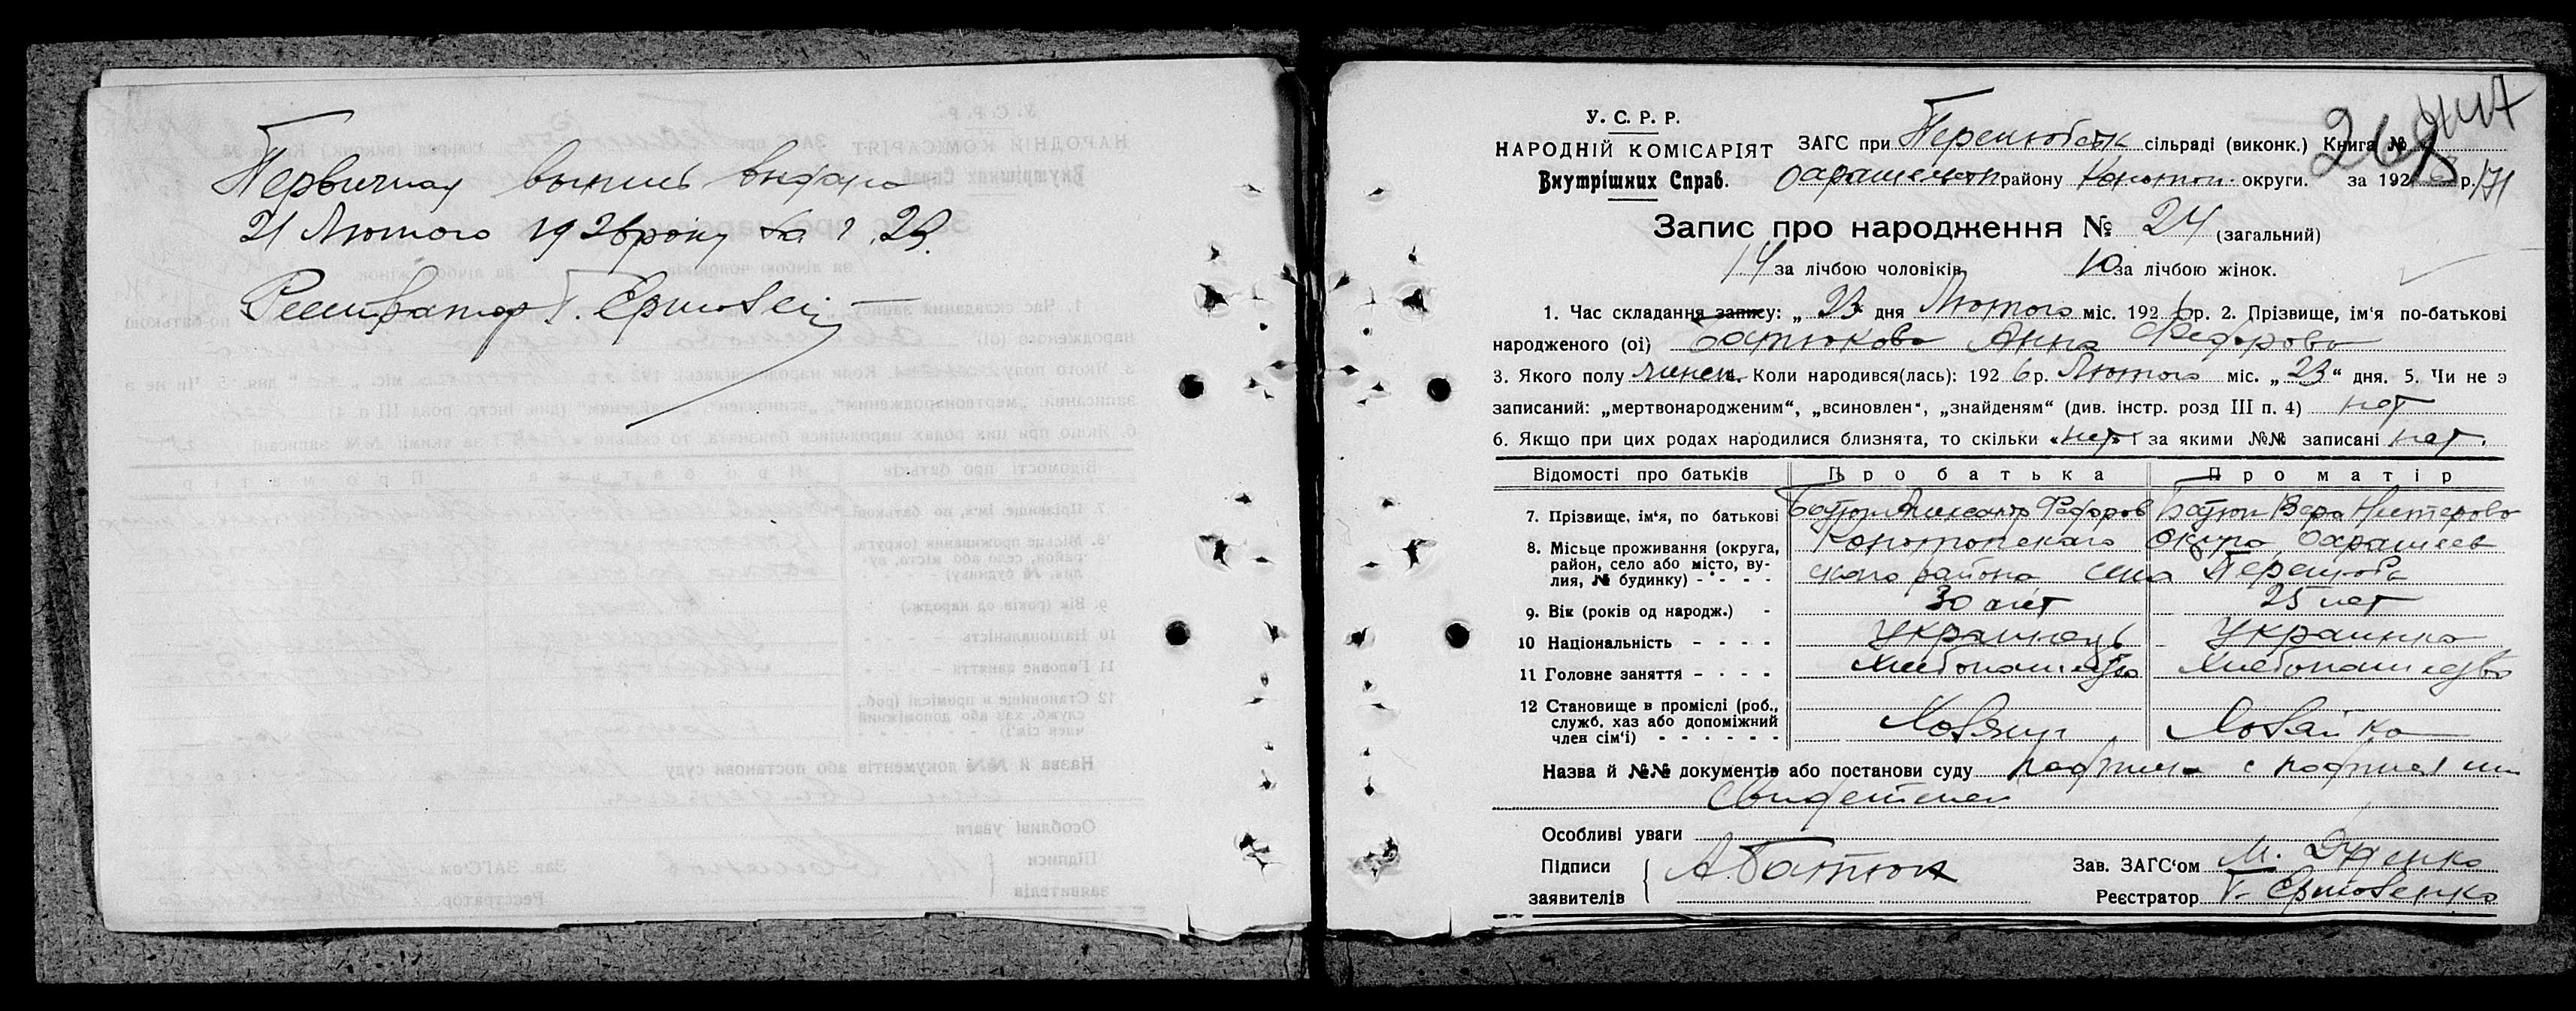 Первичная выпись выдана
21 Лютого 1926 року за № 23.
Реєстратор Г.
У. С. Р. Р.
НАРОДНІЙ КОМІСАРІЯТ
Внутрішних Справ.
ЗАГС при сільраді (виконк.) Книга №
району Конотоп. округи. за 1926 р.
Запис про народження № 24 (загальний)
14 за лічбою чоловіків 10 за лічбою жінок.
1. Час складання запису: „ 23 дня Лютого міс. 1926 р. 2. Прізвище, ім'я по-батькові
народженого (ої) Батюкова Анна
3. Якого полу женск. 4. Коли народився(лась): 1926 р. Лютого міс. „23“ дня. 5. Чи не э
записаний: „мертвонародженим“, „всиновлен“, „знайденям“ (див. інстр. розд III п. 4) нет
6. Якщо при цих родах народилися близнята, то скільки «нет» і за якими №№ записані нет.
Відомості про батьків Про батька Про матір
7. Прізвище, ім'я, по батькові Батюк Александр Федоров Батюк Вера Нестерова
8. Місьце проживання (округа, район, село або місто, ву-
лия, № будинку) - - - - Конотопскаго Округа,
ского района села
9. Вік (років од народж.) - 30 лет 25 лет
10 Національність - - - - Украинець Украинка
11 Головне заняття - - - - Хлебопашество Хлебопашество
12 Становище в проміслі (роб.,
служб, хаз або допоміжний
член сім'і) - - - - - - Хозяин Хозяйка
Назва й №№ документів або постанови суду
свидетелей
Особливі уваги
Підписи
заявителів А Батюк
Зав. ЗАГС'ом М.
Реєстратор Г.